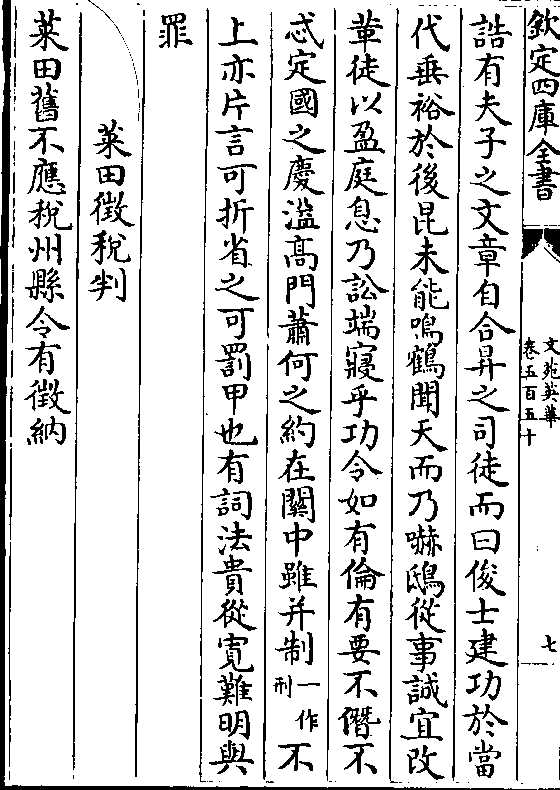 欽定四庫全書
文苑英華
卷五百五十
七
誥有夫子之文章自合昇之司徒而曰俊士建功於當
代垂裕於後昆未能鳴鶴聞天而乃嚇鴟從事誠宜改
葦徒以盈庭息乃訟端寢乎功令如有倫有要不僭不
忒定國之慶溢髙門蕭何之約在關中雖并制一作刑不
上亦片言可折省之可罰甲也有詞法貴從寛難明與
罪
萊田徴稅判
萊田舊不應稅州縣令有徴納